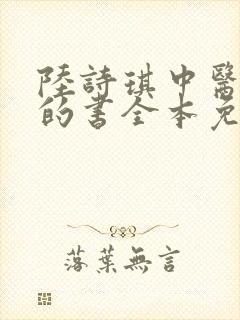 陸詩琪中醫
的書全本免
落葉無言